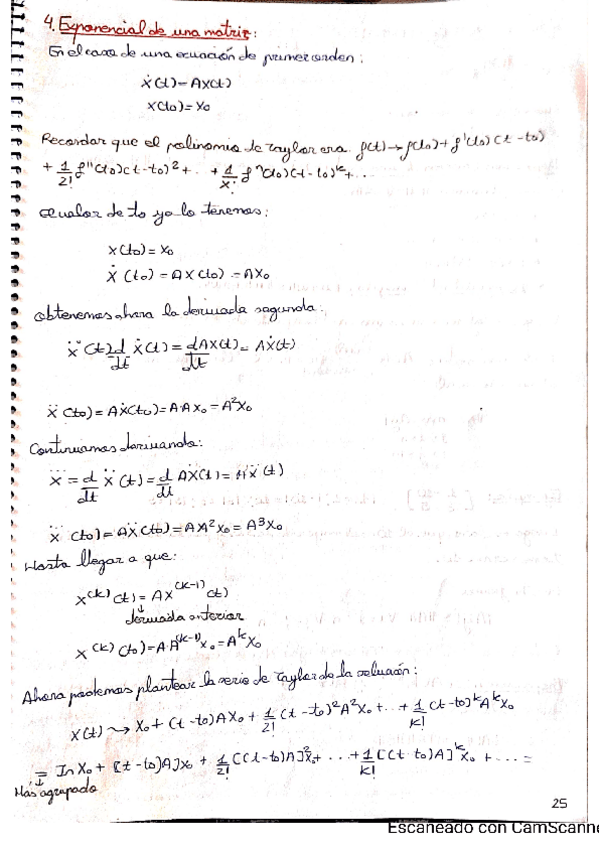 4. Exponencial de una matriz:
En el caso de una ecuación de primer orden:
ẋ(t) = Ax(t)
x(t0) = x0
Recordar que el polinomio de Taylor era f(t) → f(t0) + f'(t0)(t - t0)
+ 1/2! f''(t0)(t - t0)² + ... + 1/K! f^k(t0)(t - t0)^k + ...
El valor de t0 ya lo tenemos:
x(t0) = x0
ẋ(t0) = Ax(t0) = Ax0
obtenemos ahora la derivada segunda:
ẍ(t) = d/dt ẋ(t) = dAx(t)/dt = Aẋ(t)
ẍ(t0) = Aẋ(t0) = A·Ax0 = A²x0
Continuamos derivando:
x⃛ = d/dt ẍ(t) = d/dt Aẋ(t) = Aẍ(t)
x⃛(t0) = Aẍ(t0) = AA²x0 = A³x0
Hasta llegar a que:
x^(k)(t) = Ax^(k-1)(t)
↓
derivada anterior
x^(k)(t0) = A·A^(k-1)x0 = A^k x0
Ahora podemos plantear la serie de Taylor de la solución:
x(t) ⤳ x0 + (t - t0)Ax0 + 1/2! (t - t0)²A²x0 + ... + 1/K! (t - t0)^k A^k x0
= In x0 + [t - t0)A]x0 + 1/2! [(t - t0)A]²x0 + ... + 1/K! [(t - t0)A]^k x0 + ... =
↓
Más agrupado
25
Escaneado con CamScanne